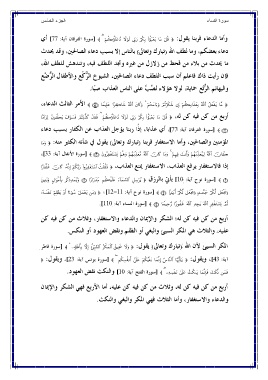 سورة النساء
الجزء الخامس
وأما الدعاء فربنا يقول: ﴿ قُلْ مَا يَعْبَأُ بِكُمْ رَبِّي لَوْلَا دُعَاؤُكُمْ ﴾ [سورة الفرقان آية: 77] أي
دعاء بعضكم، وما لطف الله (تبارك وتعالى) بالناس إلا بسبب دعاء الصالحين، وقد يحدث
ما يحدث من بلاء من قحط من زلازل من غيره وتجد اللطف فيه، وتندهش للطف الله،
فإن رأيت ذاك فاعلم أن سبب اللطف دعاء الصالحين، الشيوخ الرُّكَّع والأطفال الرُّضَّع
والبهائم الرُّتَّع
لولا هؤلاء لصُبَّ على الناس العذاب صبا.
الأمر الثالث الدعاء،
أربع من كن فيه كن له،
﴿ قُلْ مَا يَعْبَأُ بِكُمْ رَبِّي لَوْلَا دُعَاؤُكُمْ فَقَدْ كَذَّبْتُمْ فَسَوْفَ يَكُونُ لِزَامًا
﴾ [سورة الفرقان آية: 77]، أي عذابا، إذًا ربنا يؤجل العذاب عن الكفار بسبب دعاء
المؤمنين والصالحين، وأما الاستغفار فربنا (تبارك وتعالى) يقول في شأنه الكثير منه: ﴿ وَمَا
كَانَ اللَّهُ لِيُعَذِّبَهُمْ وَأَنتَ فِيهِمْ ۚ وَمَا كَانَ اللَّهُ مُعَذِّبَهُمْ وَهُمْ يَسْتَغْفِرُونَ ﴾ [سورة الأنفال آية: 33]،
إذًا فالاستغفار يرفع العذاب، الاستغفار يمنع العذاب، ﴿ فَقُلْتُ اسْتَغْفِرُوا رَبَّكُمْ إِنَّهُ كَانَ غَفَّارًا
﴾ [سورة نوح آية: 10] يأتي بالرزق ﴿ يُرْسِلِ السَّمَاءَ عَلَيْكُم مِّدْرَارًا ﴿﴾ وَيُمْدِدْكُم بِأَمْوَالٍ وَبَنِينَ
وَيَجْعَل لَّكُمْ جَنَّاتٍ وَيَجْعَل لَّكُمْ أَنْهَارًا ﴾ [سورة نوح آية: 11-12]، ﴿ وَمَن يَعْمَلْ سُوءًا أَوْ يَظْلِمْ نَفْسَهُ
ثُمَّ يَسْتَغْفِرِ اللَّهَ يَجِدِ اللَّهَ غَفُورًا رَّحِيمًا ﴾ [سورة النساء آية: 110].
أربع من كن فيه كن له: الشكر والإيمان والدعاء والاستغفار، وثلاث من كن فيه كن
عليه. والثلاث هي المكر السيئ والبغي أو الظلم ونقض العهود أو النكس.
المكر السيئ لأن الله (تبارك وتعالى) يقول: ﴿ وَلَا يَحِيقُ الْمَكْرُ السَّيِّئُ إِلَّا بِأَهْلِهِ ﴾ [سورة فاطر
آية: 43]، ويقول: ﴿ يَا أَيُّهَا النَّاسُ إِنَّمَا بَغْيُكُمْ عَلَىٰ أَنفُسِكُم ﴾ [سورة يونس آية: 23]، ويقول: ﴿
فَمَن نَّكَثَ فَإِنَّمَا يَنكُثُ عَلَىٰ نَفْسِهِ ﴾ [سورة الفتح آية: 10] والنكث نقض العهود.
أربع من كن فيه كن له، وثلاث من كن فيه كن عليه، أما الأربع فهي الشكر والإيمان
والدعاء والاستغفار، وأما الثلاث فهي المكر والبغي والنكث.